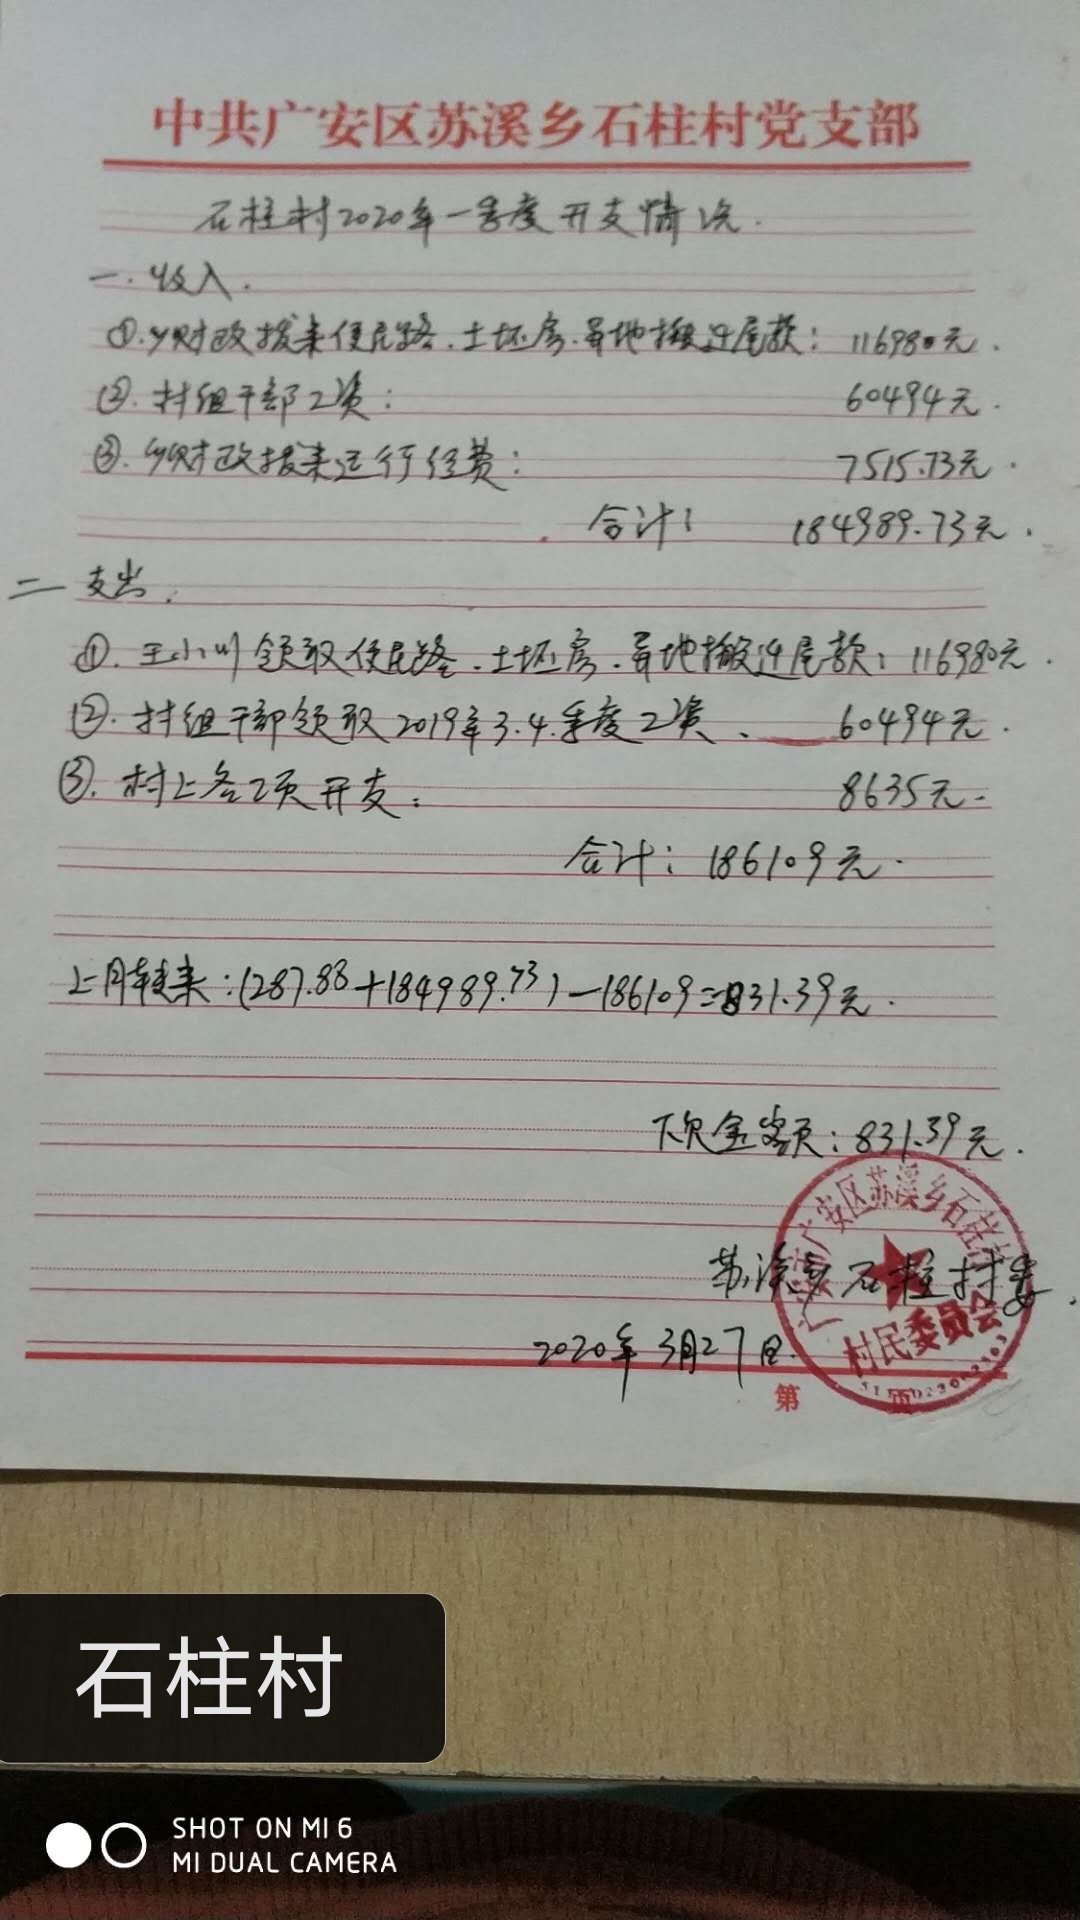 中共广安区苏溪乡石柱村党支部
石柱村2020年一季度开支情况.
一.收入.
①.乡财政拨来便民路.土坯房.异地搬迁尾款: 116980元.
②.村组干部工资: 60494元.
③.乡财政拨来运行经费: 7515.73元.
合计: 184989.73元.
二 支出.
①.王小川领取便民路.土坯房.异地搬迁尾款: 116980元.
②.村组干部领取2019年3.4.季度工资、 60494元.
③.村上各项开支: 8635元.
合计: 186109元.
上月转来:(287.88+184989.73)-186109=831.39元.
下欠金额: 831.39元.
广安区苏溪乡石柱村
苏溪乡石柱村委.
村民委员会
2020年3月27日.
第 页
石柱村
SHOT ON MI 6
MI DUAL CAMERA